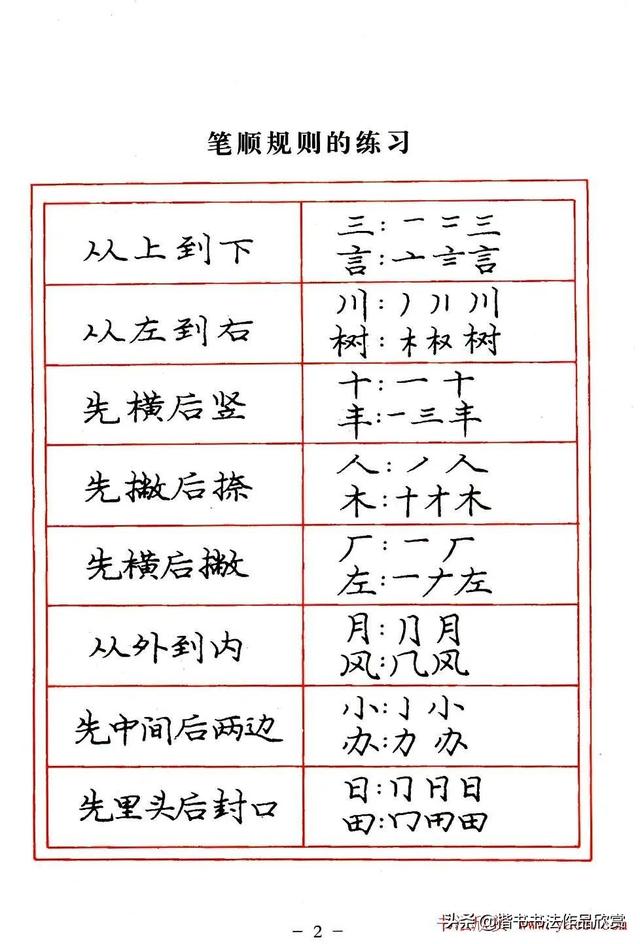 笔顺规则的练习
从上到下
三:一 二 三
言:亠 亖 言
从左到右
川:丿 丿丨 川
树:木 权 树
先横后竖
十:一 十
丰:一三丰
先撇后捺
人:丿 人
木:十 才 木
先横后撇
厂:一 厂
左:一ナ左
从外到内
月:⺆ 月
风:几风
先中间后两边
小:亅 小
办:力 办
先里头后封口
日:冂 日 日
田:冂 田
- 2 -
头条@楷书书法作品欣赏